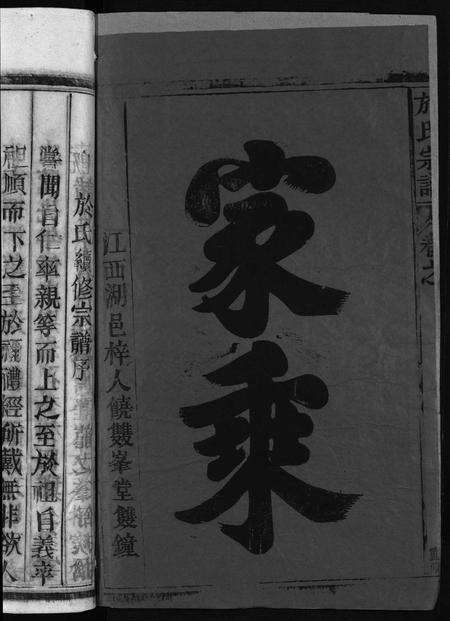 於氏宗譜
家乘
江西湖邑梓人饒雙峯堂雙鐘
於氏續修宗譜序
嘗聞自仁率親等而上之至於祖自義率
祖順而下之至於禰禮經所載無非欲人